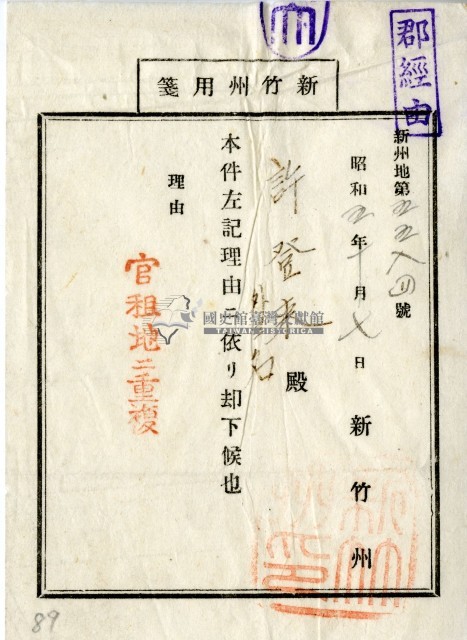 郡經由
新竹州用箋
新州地第五五八四號
昭和五年十月七日
新竹州
許登
殿
本件左記理由ニ依リ却下候也
理由
官租地ニ重複
國史館臺灣文獻館
TAIWAN HISTORICA
89